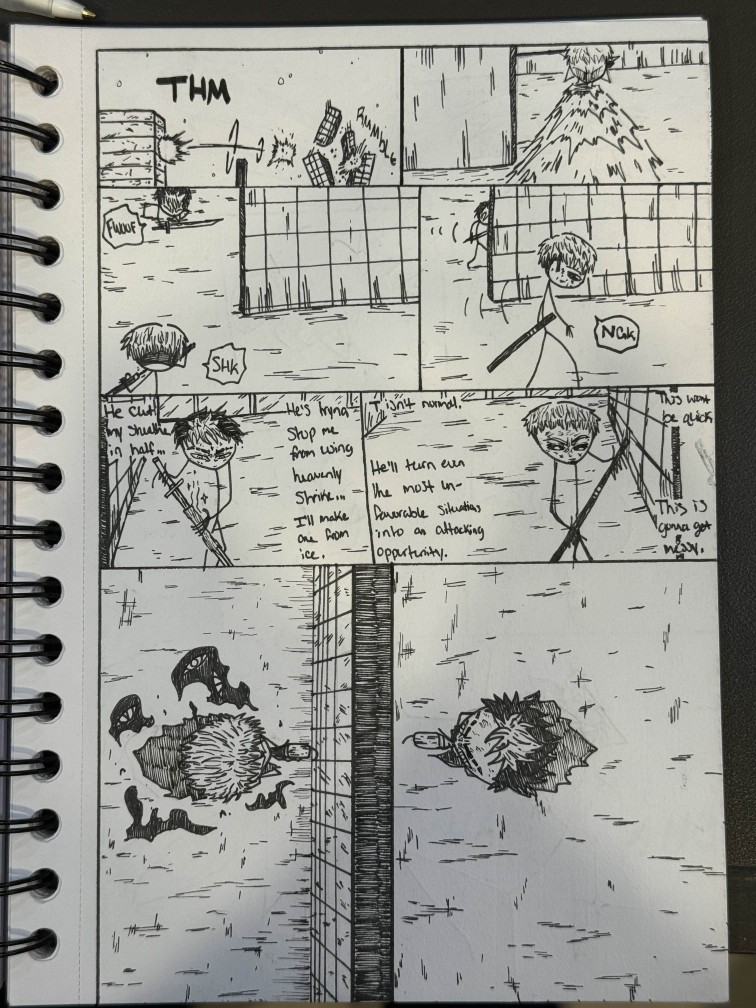 THM
RUMBLE
FWOOF
SHK
NGK
He cut
my Shuriken
in half...
He's tryna
Stop me
from using
heavenly
Shrine...
I'll make
one from
ice.
T isn't normal.
He'll turn even
the most un-
favorable situations
into an attacking
opportunity.
This wont
be quick
This is
gonna get
messy.